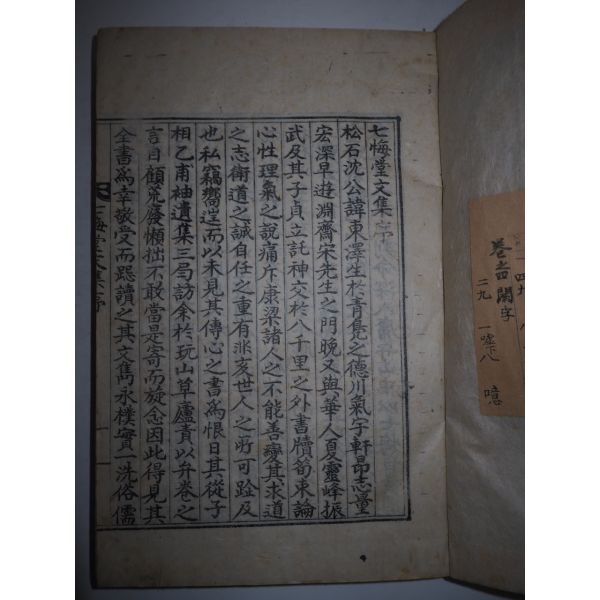 七悔堂文集序
松石沈公諱東澤生於青鳧之德川氣宇軒昂志量
宏深早遊淵齋宋先生之門晚又與華人夏靈峰振
武及其子貞立託神交於八千里之外書牘荀束論
心性理氣之說痛斥康梁諸人之不能善變其求道
之志衛道之誠自任之重有非亥世人之所可跂及
也私竊嚮逞而以未見其傳心之書為恨日其從子
相乙甫袖遺集三局訪余於玩山草廬責以弁卷之
言自顧荒廢懶拙不敢當是寄而旋念因此得見其
全書為幸敬受而跽讀之其文雋永樸實一洗俗儒
七悔堂文集序
一
闕字
二九 一噓下八 噫